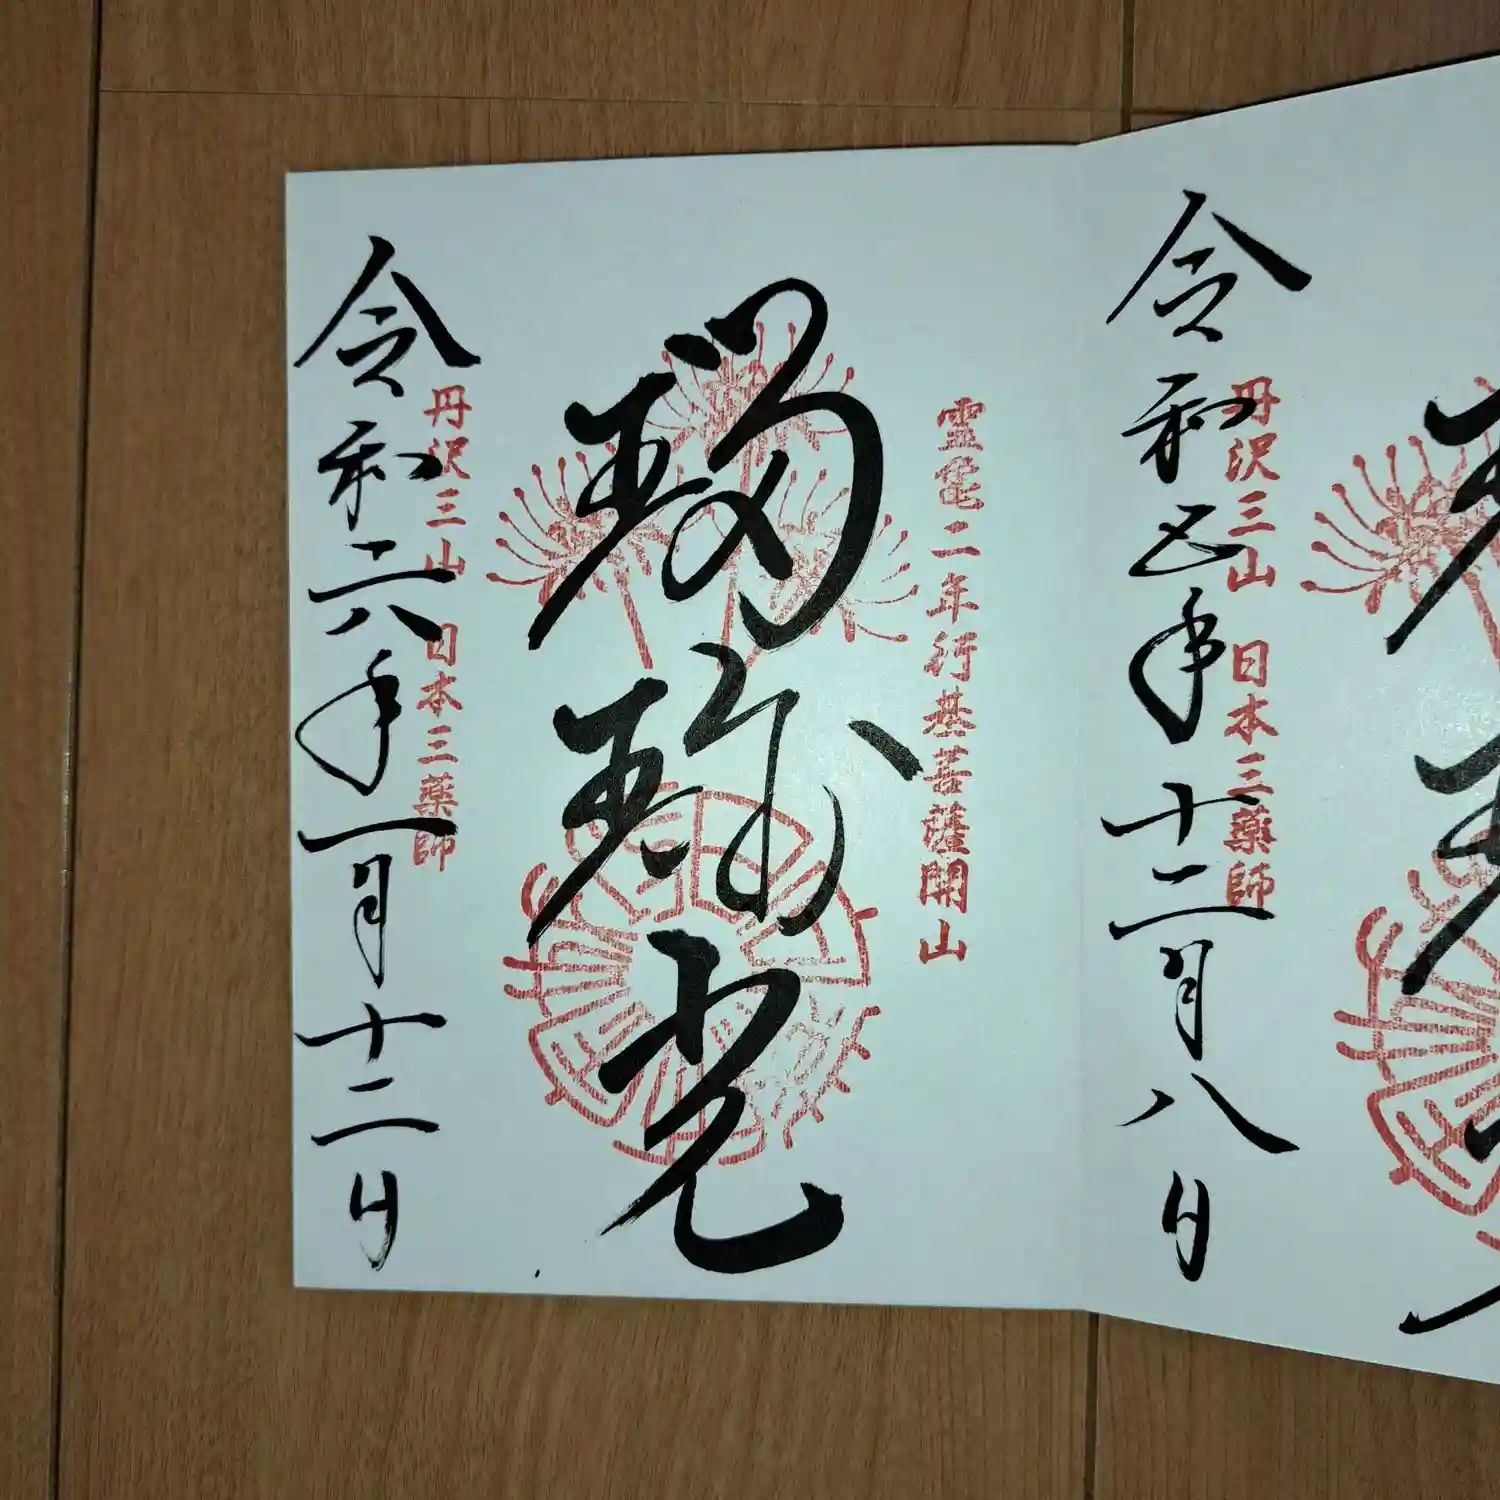 令和五年十二月八日
丹沢三山 日本三薬師
霊亀二年行基菩薩開山
瑠璃光
令和六年一月十二日
丹沢三山 日本三薬師